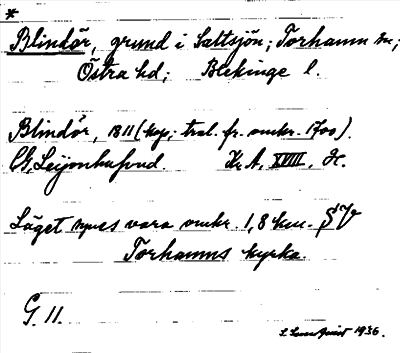 *
Blindör, grund i Saltsjön; Torhamn sn;
Östra hd; Blekinge l.
Blindör, 1811 (kop; trol. fr. omkr. 1700).
G. Leijonhufvud. Kr. A, XVIII,
Läget synes vara omkr. 1,8 km. SV
Torhamns kyrka.
G. 11.
1936.